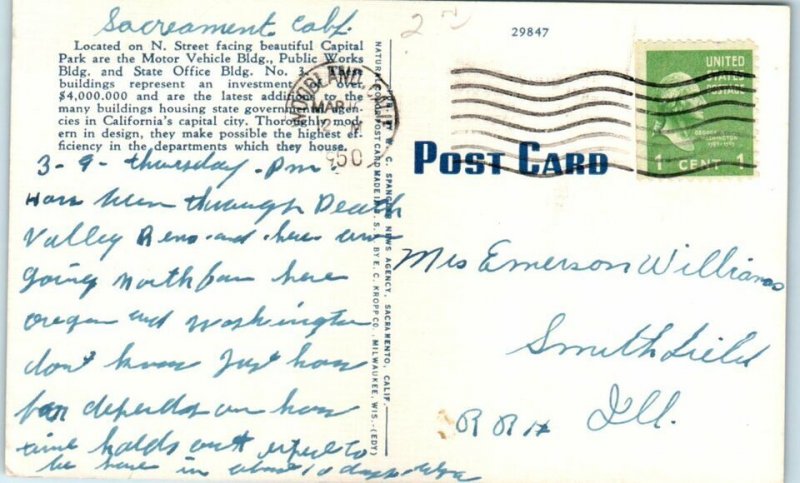 Sacreament Calif.
29847
Located on N. Street facing beautiful Capital
Park are the Motor Vehicle Bldg., Public Works
Bldg. and State Office Bldg. No. 1. The
buildings represent an investment over
$4,000.000 and are the latest additions to the
many buildings housing state government agen-
cies in California's capital city. Thoroughly mod-
ern in design, they make possible the highest ef-
ficiency in the departments which they house.
WOODLAND CALIF
MAR
1950
UNITED
STATES
POSTAGE
GEORGE
WASHINGTON
1 CENT 1
POST CARD
PUB. BY W. C. SPANGLER NEWS AGENCY, SACRAMENTO, CALIF.
NATURAL COLOR POST CARD MADE IN U. S. A. BY E. C. KROPP CO., MILWAUKEE, WIS. (EDY)
3-9-thursday-Pm.
Have been through Death
Valley Reno and here are
going north from here
oregon and washington
don't know just how
far depends on how
time holds out expect to
be home in about 10 days
Mrs Emerson Williams
Smithfield
RR# Ill.